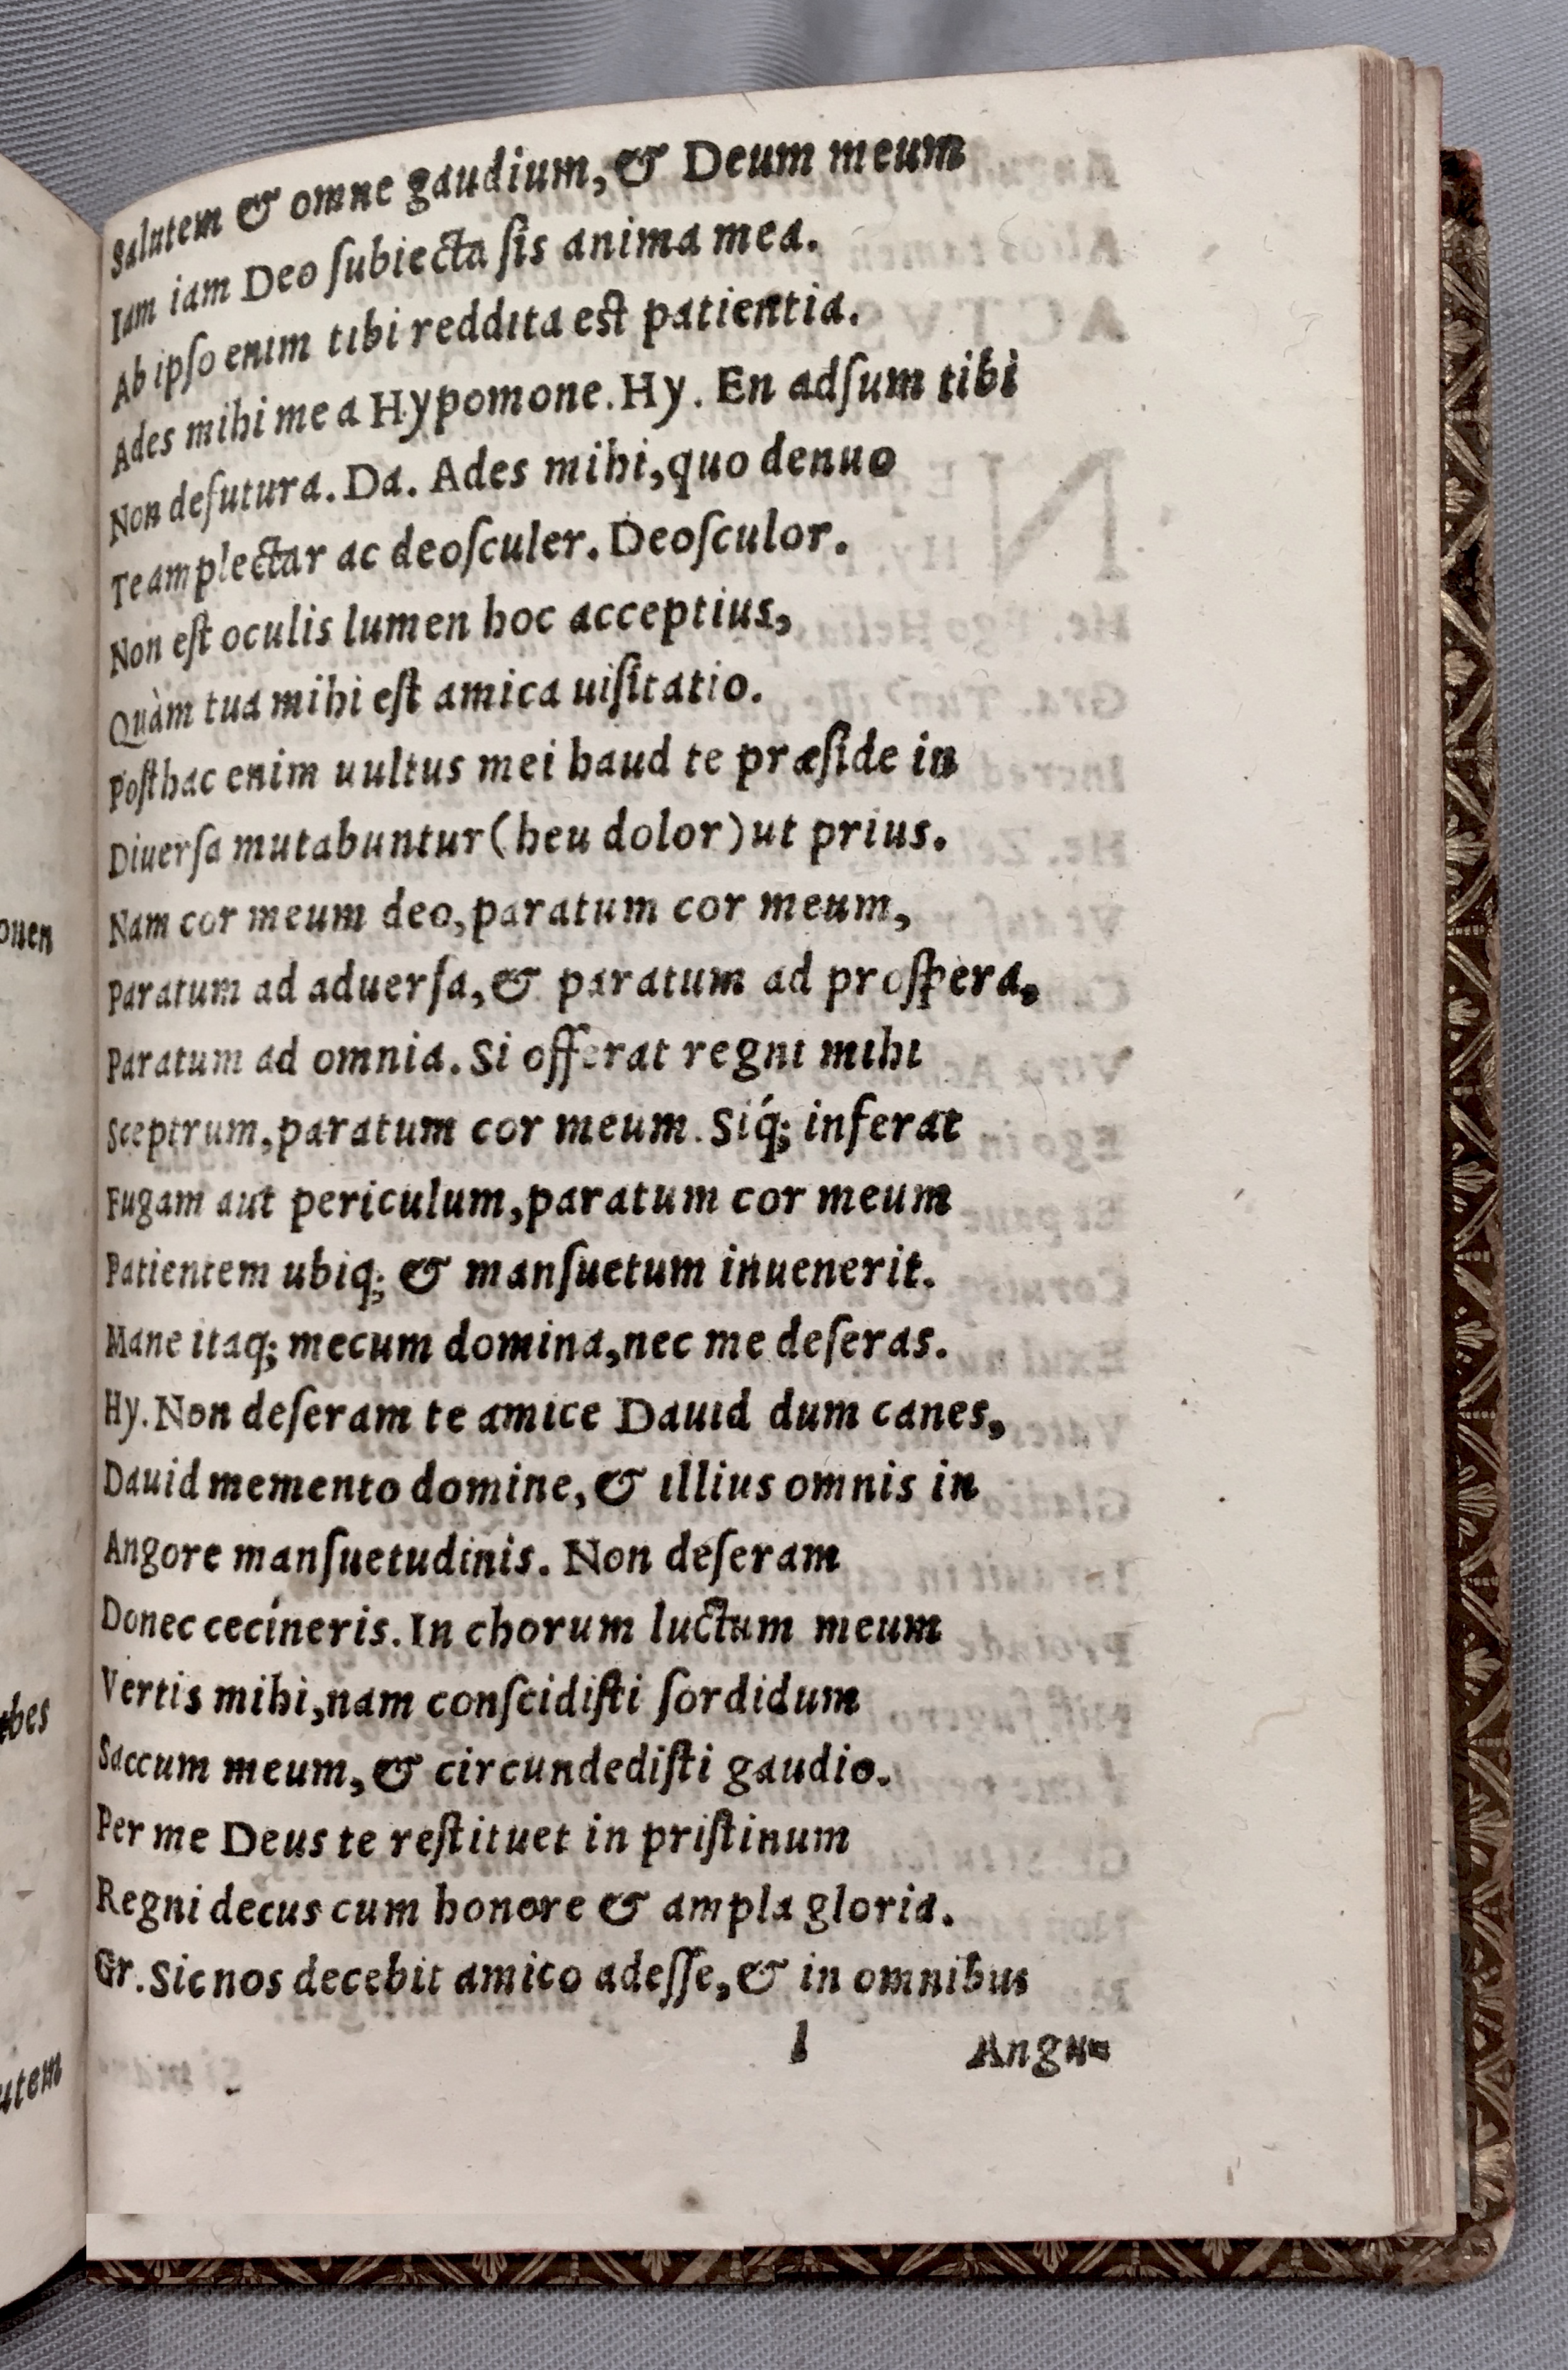 Salutem & omne gaudium, & Deum meum
Iam iam Deo ſubiecta ſis anima mea.
Ab ipſo enim tibi reddita est patientia.
Ades mihi mea Hypomone. Hy. En adſum tibi
Non defutura. Da. Ades mihi, quo denuo
Te amplectar ac deoſculer. Deoſculor.
Non eſt oculis lumen hoc acceptius,
Quàm tua mihi eſt amica uiſitatio.
Poſthac enim uultus mei haud te præſide in
Diuerſa mutabuntur (heu dolor) ut prius.
Nam cor meum deo, paratum cor meum,
Paratum ad aduerſa, & paratum ad proſpera,
Paratum ad omnia. Si offerat regni mihi
Sceptrum, paratum cor meum. Siq́; inferat
Fugam aut periculum, paratum cor meum
Patientem ubiq; & manſuetum inuenerit.
Mane itaq; mecum domina, nec me deſeras.
Hy. Non deſeram te amice Dauid dum canes,
Dauid memento domine, & illius omnis in
Angore manſuetudinis. Non deſeram
Donec cecíneris. In chorum luctum meum
Vertis mihi, nam conſcidiſti ſordidum
Saccum meum, & circundediſti gaudio.
Per me Deus te reſtituet in priſtinum
Regni decus cum honore & ampla gloria.
Gr. Sic nos decebit amico adeſſe, & in omnibus
l Angu-
onen
utem